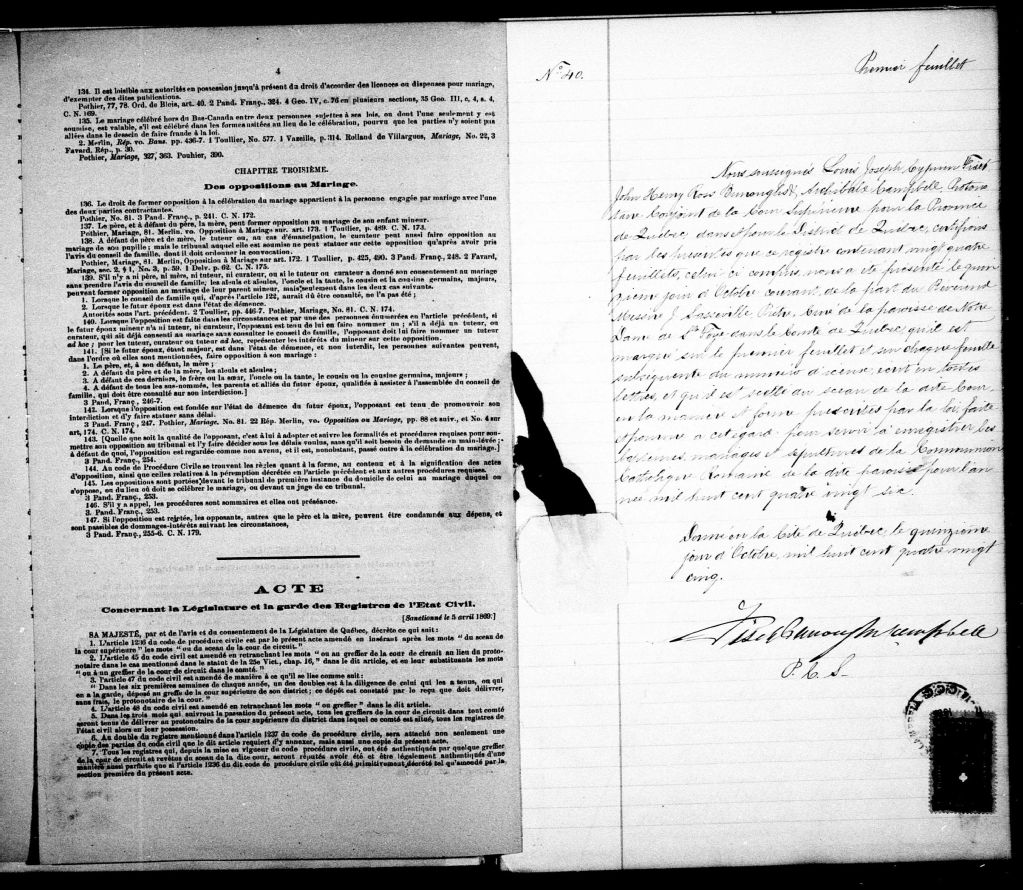 4
134. Il est loisible aux autorités en possession jusqu'à présent du droit d'accorder des licences ou dispenses pour mariage,
d'exempter des dites publications.
Pothier, 77, 78. Ord. de Blois, art. 40. 2 Pand. Franç., 324. 4 Geo. IV, c. 76 en plusieurs sections, 35 Geo. III, c, 4, s. 4,
C. N. 169.
135. Le mariage célébré hors du Bas-Canada entre deux personnes sujettes à ses lois, ou dont l'une seulement y est
soumise, est valable, s'il est célébré dans les formes usitées au lieu de la célébration, pourvu que les parties n'y soient pas
allées dans le dessein de faire fraude à la loi.
2. Merlin, Rép. vo. Bans. pp. 436-7. 1 Toullier, No. 577. 1 Vazeille, p. 314. Rolland de Villargues, Mariage, No. 22, 3
Favard, Rép., p. 30.
Pothier, Mariage, 327, 363. Pouhier, 390.
CHAPITRE TROISIÈME.
Des oppositions au Mariage.
136. Le droit de former opposition à la célébration du mariage appartient à la personne engagée par mariage avec l'une
des deux parties contractantes.
Pothier, No. 81. 3 Pand. Franç., p. 241. C. N. 172.
137. Le père, et à défaut du père, la mère, peut former opposition au mariage de son enfant mineur.
Pothier, Mariage, 81. Merlin. vo. Opposition à Mariage sur. art. 173. 1 Toullier, p. 489. C. N. 173.
138. A défaut de père et de mère, le tuteur ou, au cas d'émancipation, le curateur peut aussi faire opposition au
mariage de son pupille; mais le tribunal auquel elle est soumise ne peut statuer sur cette opposition qu'après avoir pris
l'avis du conseil de famille, dont il doit ordonner la convocation.
Pothier, Mariage, 81. Merlin, Opposition à Mariage sur art. 172. 1 Toullier, p. 425, 490. 3 Pand. Franç., 248. 2 Favard,
Mariage, sec. 2. § 1, No. 3, p. 59. 1 Delv. p. 62. C. N. 175.
139. S'il n'y a ni père, ni mère, ni tuteur, ni curateur, ou si le tuteur ou curateur a donné son consentement au mariage
sans prendre l'avis du conseil de famille; les aïeuls et aïeules, l'oncle et la tante, le cousin et la cousine germains, majeurs,
peuvent former opposition au mariage de leur parent mineur, mais seulement dans les deux cas suivants.
1. Lorsque le conseil de famille qui, d'après l'article 122, aurait dû être consulté, ne l'a pas été;
2. Lorsque le futur époux est dans l'état de démence.
Autorités sous l'art. précédent. 2 Toullier, pp. 446-7. Pothier, Mariage, No. 81. C. N. 174.
140. Lorsque l'opposition est faite dans les circonstances et par une des personnes énumérées en l'article précédent, si
le futur époux mineur n'a ni tuteur, ni curateur, l'opposant est tenu de lui en faire nommer un; s'il a déjà un tuteur, ou
curateur, qui ait déjà consenti au mariage sans consulter le conseil de famille, l'opposant doit lui faire nommer un tuteur
ad hoc; pour les tuteur, curateur ou tuteur ad hoc, représenter les intérêts du mineur sur cette opposition.
141. [Si le futur époux, étant majeur, est dans l'état de démence, et non interdit, les personnes suivantes peuvent,
dans l'ordre où elles sont mentionnées, faire opposition à son mariage:
1. Le père, et, à son défaut, la mère;
2. A défaut du père et de la mère, les aïeuls et aïeules;
3. A défaut de ces derniers, le frère ou la sœur, l'oncle ou la tante, le cousin ou la cousine germains, majeurs;
4. A défaut de tous les sus-nommés, les parents et alliés du futur époux, qualifiés à assister à l'assemblée du conseil de
famille, qui doit être consulté sur son interdiction.]
3 Pand. Franç., 246-7.
142. Lorsque l'opposition est fondée sur l'état de démence du futur époux, l'opposant est tenu de promouvoir son
interdiction et d'y faire statuer sans délai.
3 Pand. Franç., 247. Pothier, Mariage, No. 81. 22 Rép. Merlin, vo. Opposition au Mariage, pp. 88 et suiv., et No. 4 sur
art, 174. C. N. 174.
143. [Quelle que soit la qualité de l'opposant, c'est à lui à adopter et suivre les formalités et procédures requises pour soumettre son opposition au tribunal et l'y faire décider sous les délais voulus, sans qu'il soit besoin de demande en main-lévée;
à défaut de quoi, l'opposition est regardée comme non avenu, et il est, nonobstant, passé outre à la célébration du mariage.]
3 Pand. Franç., 254.
144. Au code de Procédure Civile se trouvent les règles quant à la forme, au contenu et à la signification des actes
d'opposition, ainsi que celles relatives à la péremption décrétée en l'article précédent et aux autres procédures requises.
145. Les oppositions sont portées devant le tribunal de première instance du domicile de celui au mariage duquel on
s'oppose, ou du lieu où doit se célébrer le mariage, ou devant un juge de ce tribunal.
3 Pand. Franç., 253.
146. S'il y a appel, les procédures sont sommaires et elles ont préséance.
3. Pand. Franç., 253.
147. Si l'opposition est rejetée, les opposants, autres que le père et la mère, peuvent être condamnés aux dépens, et
sont passibles de dommages-intérêts suivant les circonstances,
3 Pand. Franç., 255-6. C. N. 179.
ACTE
Concernant la Législature et la garde des Registres de l'Etat Civil.
[Sanctionné le 5 avril 1869:]
SA MAJESTÉ, par et de l'avis et du consentement de la Législature de Québec, décrète ce qui suit:
1. L'article 1236 du code de procédure civile est par le présent acte amendé en insérant après les mots "du sceau de
la cour supérieure" les mots "ou du sceau de la cour de circuit."
2. L'article 45 du code civil est amendé en retranchant les mots "ou au greffier de la cour de circuit au lieu du protonotaire dans le cas mentionné dans le statut de la 25e Vict., chap. 16," dans le dit article, et en leur substituants les mots
"ou à un greffier de la cour de circuit dans le comté."
3. l'article 47 du code civil est amendé de manière à ce qu'il se lise comme suit:
"Dans les six premières semaines de chaque année, un des doubles est à la diligence de celui qui les a tenus, ou qui
en a la garde, déposé au greffe de la cour supérieure de son district; ce dépôt est constaté par le reçu que doit délivrer,
sans frais, le protonotaire de la cour."
4. L'article 48 du code civil est amendé en retranchant les mots "ou greffier" dans le dit article.
5. Dans les trois mois qui suivront la passation du présent acte, tous les greffiers de la cour de circuit dans tout comté
seront tenus de délivrer au protonotaire de la cour supérieure du district dans lequel ce comté est situé, tous les registres de
l'état civil alors en leur possession.
6. Au double du registre mentionné dans l'article 1237 du code de procédure civile, sera attaché non seulement une
copie des parties du code civil que le dit article requiert d'y annexer, mais aussi une copie du présent acte.
7. Tous les registres qui, depuis la mise en vigueur du code de procédure civile, ont été authentiqués par quelque greffier
de la cour de circuit et revêtus du sceau de la dite cour, seront réputés avoir été et être légalement authentiqués d'une
manière aussi parfaite que si l'article 1236 du dit code de procédure civile eût été primitivement décrété tel qu'amendé par la
section première du présent acte.
No 40.
Premier feuillet
Nous soussignés Louis Joseph Cyprien Fiset
John Henry Ross Burroughs & Archibald Campbell, Protono
taire Conjoint de la Cour Supérieure pour la Province
de Québec dans et pour le District de Québec, certifions
par les présentes que ce registre contenant vingt quatre
feuillets, celui ci compris, nous a été présenté le quin
zième jour d'Octobre courant, de la part du Révérend
Messire J. Sasseville Ptre, Curé de la paroisse de Notre
Dame de Ste Foye dans le Comté de Québec, qu'il est
marqué sur le premier feuillet et sur chaque feuille
subséquente du numéro d'iceux, écrit en toutes
lettres, et qu'il est scellé du sceau de la dite Cour,
en la manière et forme prescrites par la loi faite
et pourvue à cet égard pour servir à enregistrer les
baptêmes, mariages et sépultures de la Communion
Catholique Romaine de la dite paroisse pour l'an
née mil huit cent quatre vingt six.
Donné en la Cité de Québec, le quinzième
jour d'Octobre, mil huit cent quatre vingt
cinq.
Fiset Burroughs Campbell
P. C. S.